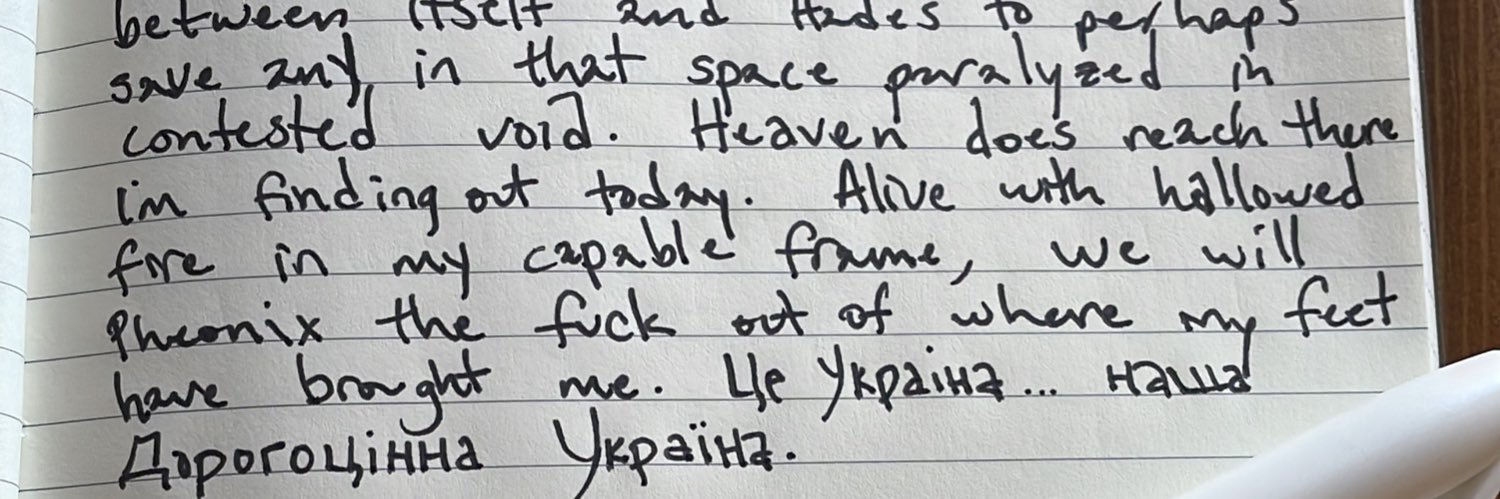 between itself and Hades to perhaps
save any in that space paralyzed in
contested void. Heaven does reach there
im finding out today. Alive with hallowed
fire in my capable frame, we will
Pheonix the fuck out of where my feet
have brought me. Це Україна... наша
Дорогоцінна Україна.